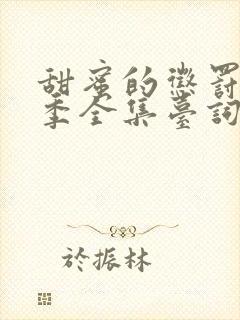 甜蜜的懲罰
季全集臺詞
於振林